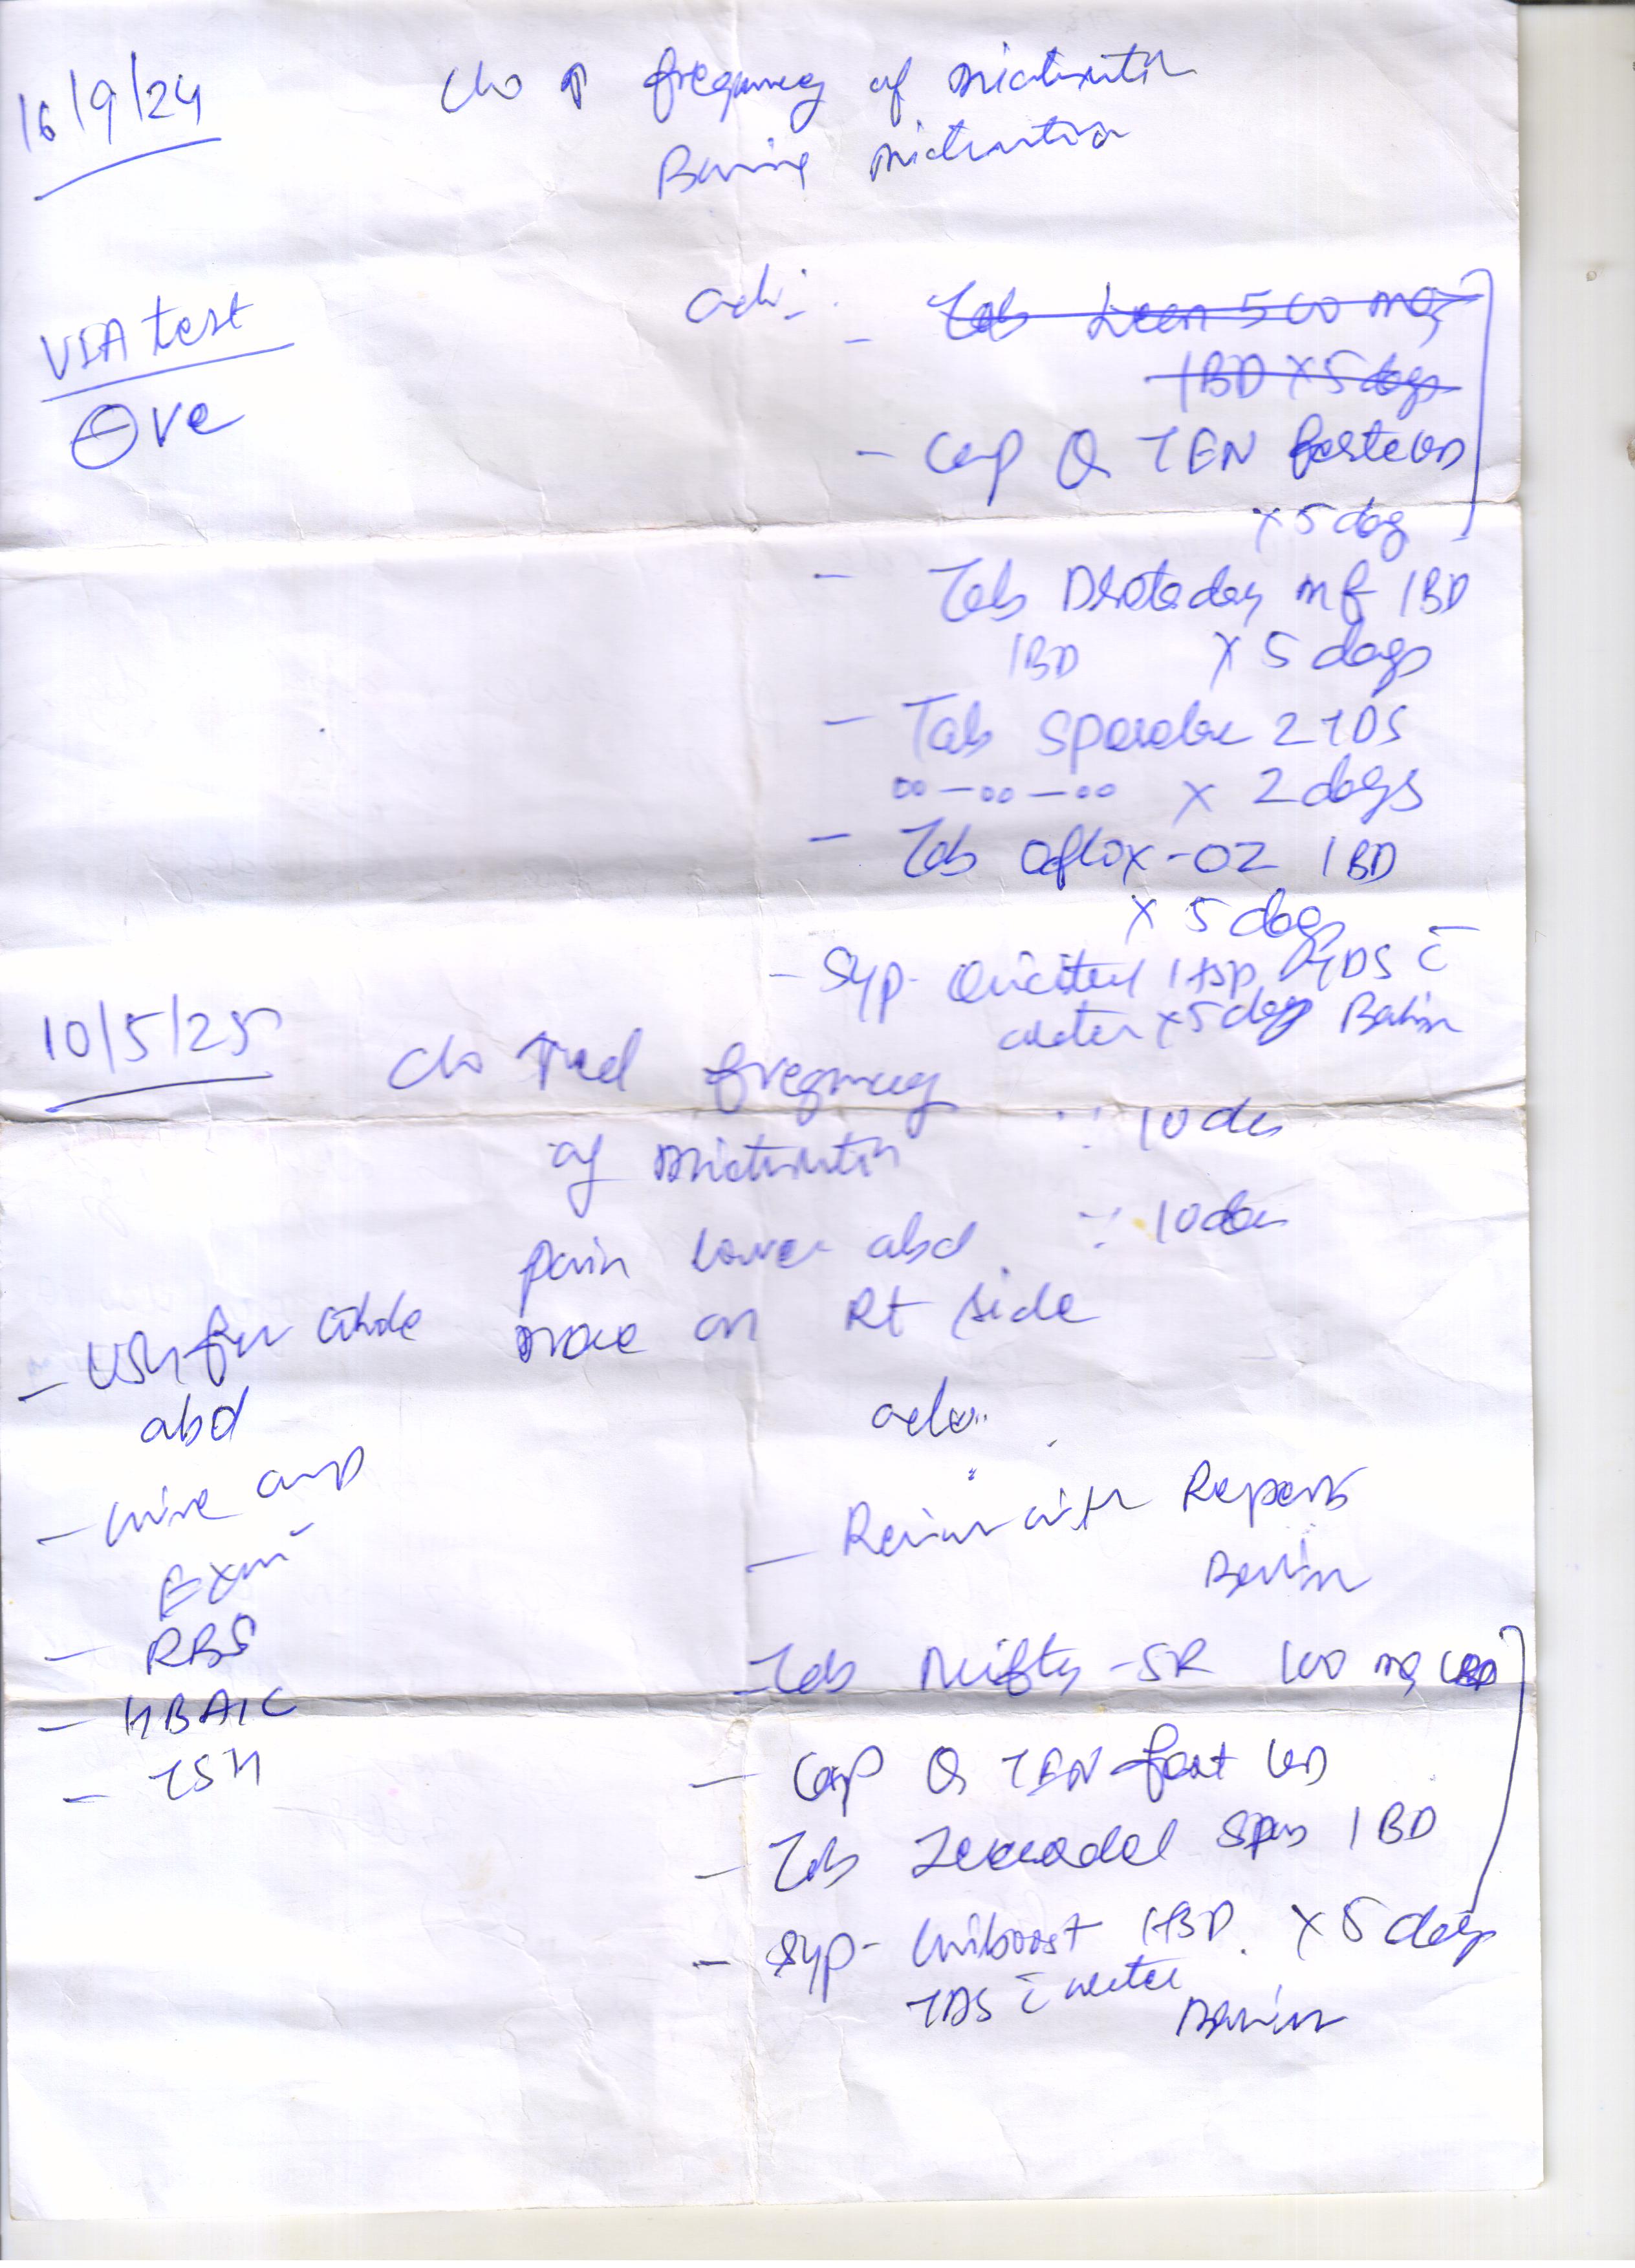 16/9/24
c/o ↑ frequency of micturition
Burning micturition
VIA test
⊖ve
adv:-
- Tab 500 mg
1BD x 5 days
- Cap Q TEN forte OD
x 5 day
- Tab mf 1BD
1BD x 5 days
- Tab 2 TDS
oo - oo - oo x 2 days
- Tab oflox-OZ 1 BD
x 5 days
- Syp. 1 tsp TDS c̄
water x 5 days
10/5/25
c/o ↑ed frequency
of micturition ∵ 10 days
pain lower abd ∵ 10 days
more on Rt side
- USG for whole
abd
- Urine
Exm
- RBS
- HBA1C
- TSH
adv..
- Review with Reports
- Tab Nifty-SR 100 mg 1BD
- Cap Q TEN fort OD
- Tab spas 1 BD
- Syp- Uriboost x 5 days
TDS c̄ water